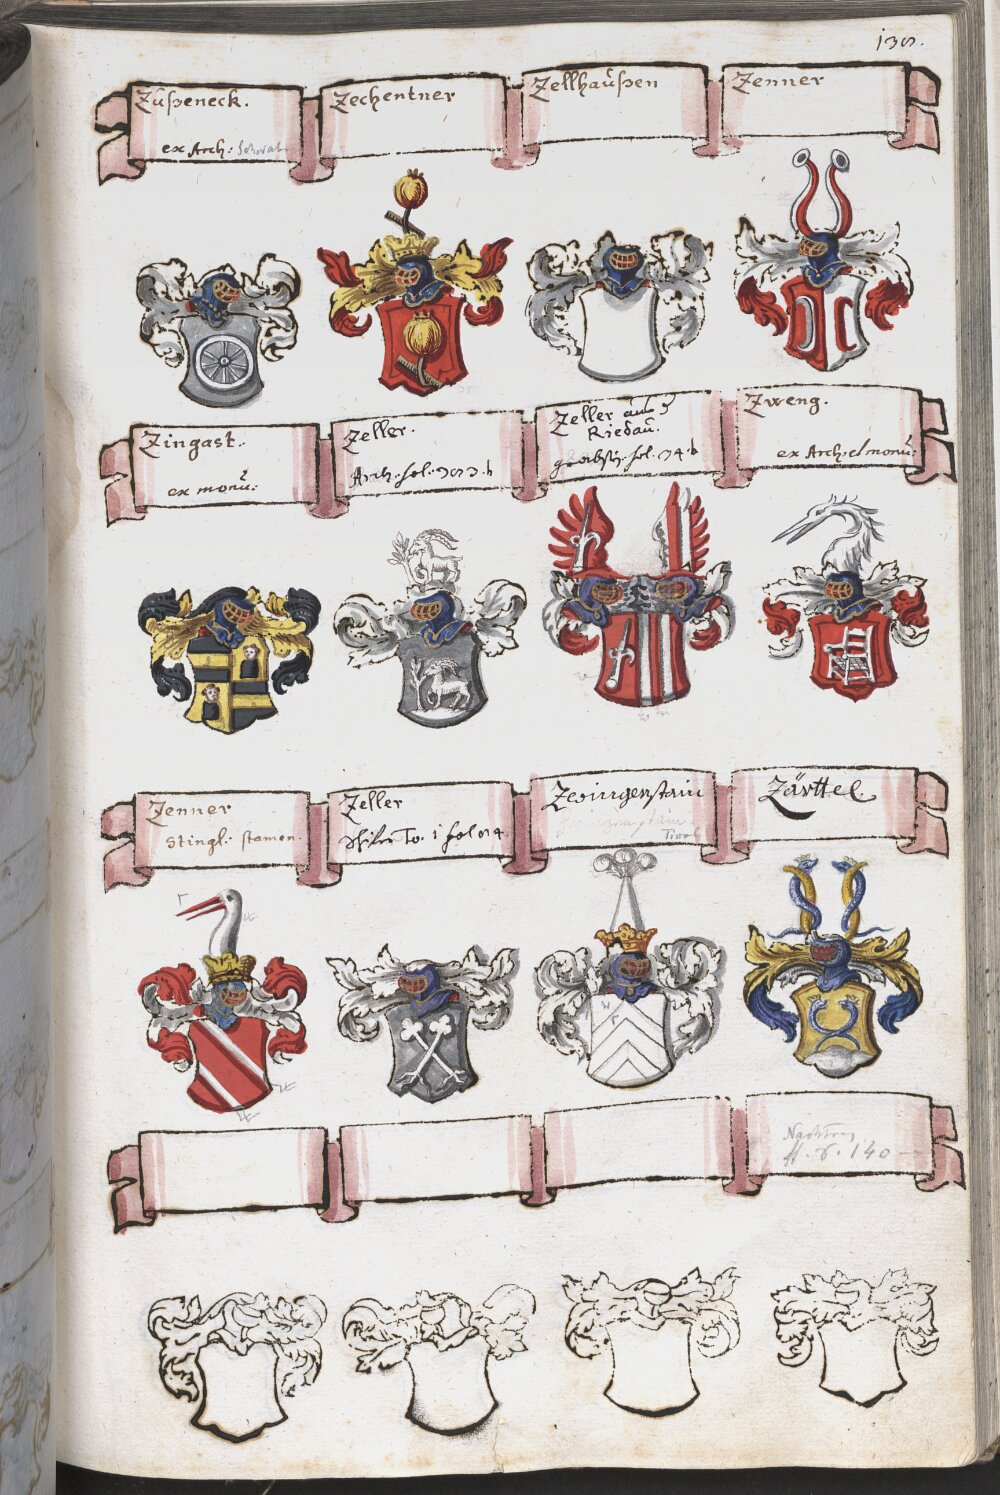 Züßeneck.
ex Arch:
Zechentner
Zellhaußen
Zenner
Zingast.
ex monū:
Zeller.
Arch. fol.
Zeller aus
Riedau.
fol. 74. b
Zweng.
ex Arch. et monū:
Zenner
Stingl: stamen.
Zeller
To. 1 fol 74.
Zwingenstain
Tirol
Zärttel.
W
Nachtrag
140